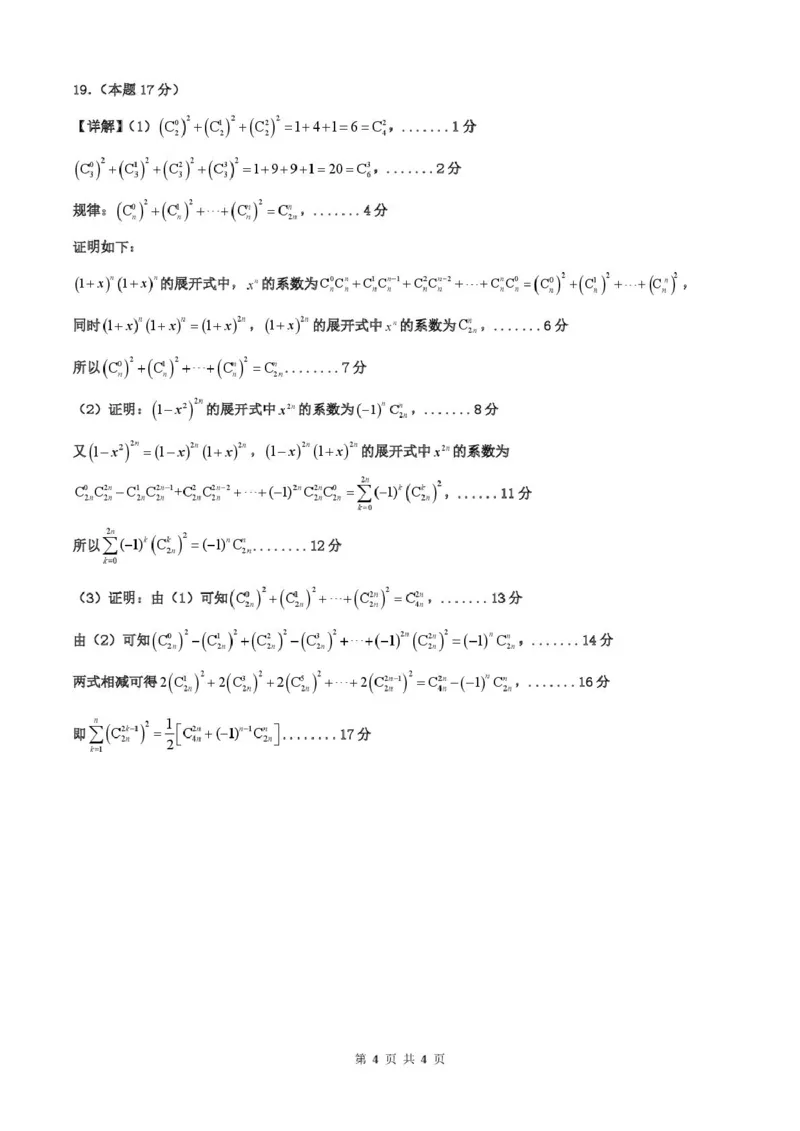 19.（本题 17 分）
【详解】（1）$(C_2^0)^2+(C_2^1)^2+(C_2^2)^2=1+4+1=6=C_4^2$，.......1 分
$(C_3^0)^2+(C_3^1)^2+(C_3^2)^2+(C_3^3)^2=1+9+9+1=20=C_6^3$，.......2 分
规律：$(C_n^0)^2+(C_n^1)^2+\cdots+(C_n^n)^2=C_{2n}^n$，.......4 分
证明如下：
$(1+x)^n(1+x)^n$的展开式中，$x^n$的系数为$C_n^0C_n^n+C_n^1C_n^{n-1}+C_n^2C_n^{n-2}+\cdots+C_n^nC_n^0=(C_n^0)^2+(C_n^1)^2+\cdots+(C_n^n)^2$，
同时$(1+x)^n(1+x)^n=(1+x)^{2n}$，$(1+x)^{2n}$的展开式中$x^n$的系数为$C_{2n}^n$，.......6 分
所以$(C_n^0)^2+(C_n^1)^2+\cdots+(C_n^n)^2=C_{2n}^n$........7 分
（2）证明：$(1-x^2)^{2n}$的展开式中$x^{2n}$的系数为$(-1)^nC_{2n}^n$，.......8 分
又$(1-x^2)^{2n}=(1-x)^{2n}(1+x)^{2n}$，$(1-x)^{2n}(1+x)^{2n}$的展开式中$x^{2n}$的系数为
$C_{2n}^0C_{2n}^{2n}-C_{2n}^1C_{2n}^{2n-1}+C_{2n}^2C_{2n}^{2n-2}+\cdots+(-1)^{2n}C_{2n}^{2n}C_{2n}^0=\sum_{k=0}^{2n}(-1)^k(C_{2n}^k)^2$，......11 分
所以$\sum_{k=0}^{2n}(-1)^k(C_{2n}^k)^2=(-1)^nC_{2n}^n$........12 分
（3）证明：由（1）可知$(C_{2n}^0)^2+(C_{2n}^1)^2+\cdots+(C_{2n}^{2n})^2=C_{4n}^{2n}$，.......13 分
由（2）可知$(C_{2n}^0)^2-(C_{2n}^1)^2+(C_{2n}^2)^2-(C_{2n}^3)^2+\cdots+(-1)^{2n}(C_{2n}^{2n})^2=(-1)^nC_{2n}^n$，.......14 分
两式相减可得$2(C_{2n}^1)^2+2(C_{2n}^3)^2+2(C_{2n}^5)^2+\cdots+2(C_{2n}^{2n-1})^2=C_{4n}^{2n}-(-1)^nC_{2n}^n$，.......16 分
即$\sum_{k=1}^{n}(C_{2n}^{2k-1})^2=\frac{1}{2}[C_{4n}^{2n}+(-1)^{n-1}C_{2n}^n]$........17 分
第 4 页 共 4 页